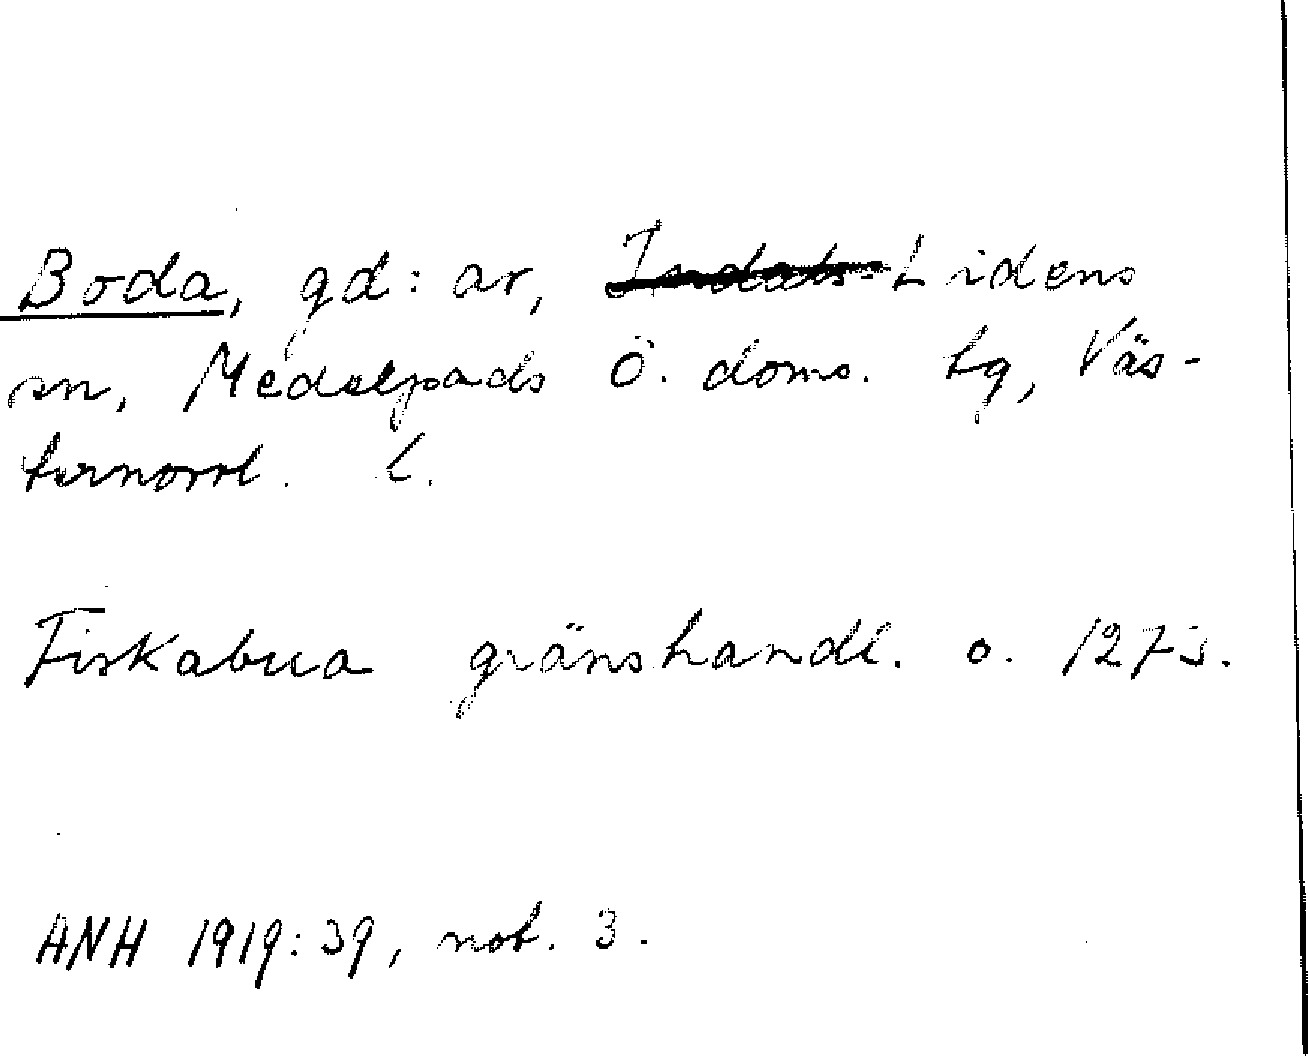 Boda, gd:ar, Indals-Lidens
sn, Medelpads Ö. doms. tg, Väs-
ternorrl. l.
Fiskabua gränshandl. o. 1273.
ANH 1919:39, not. 3.